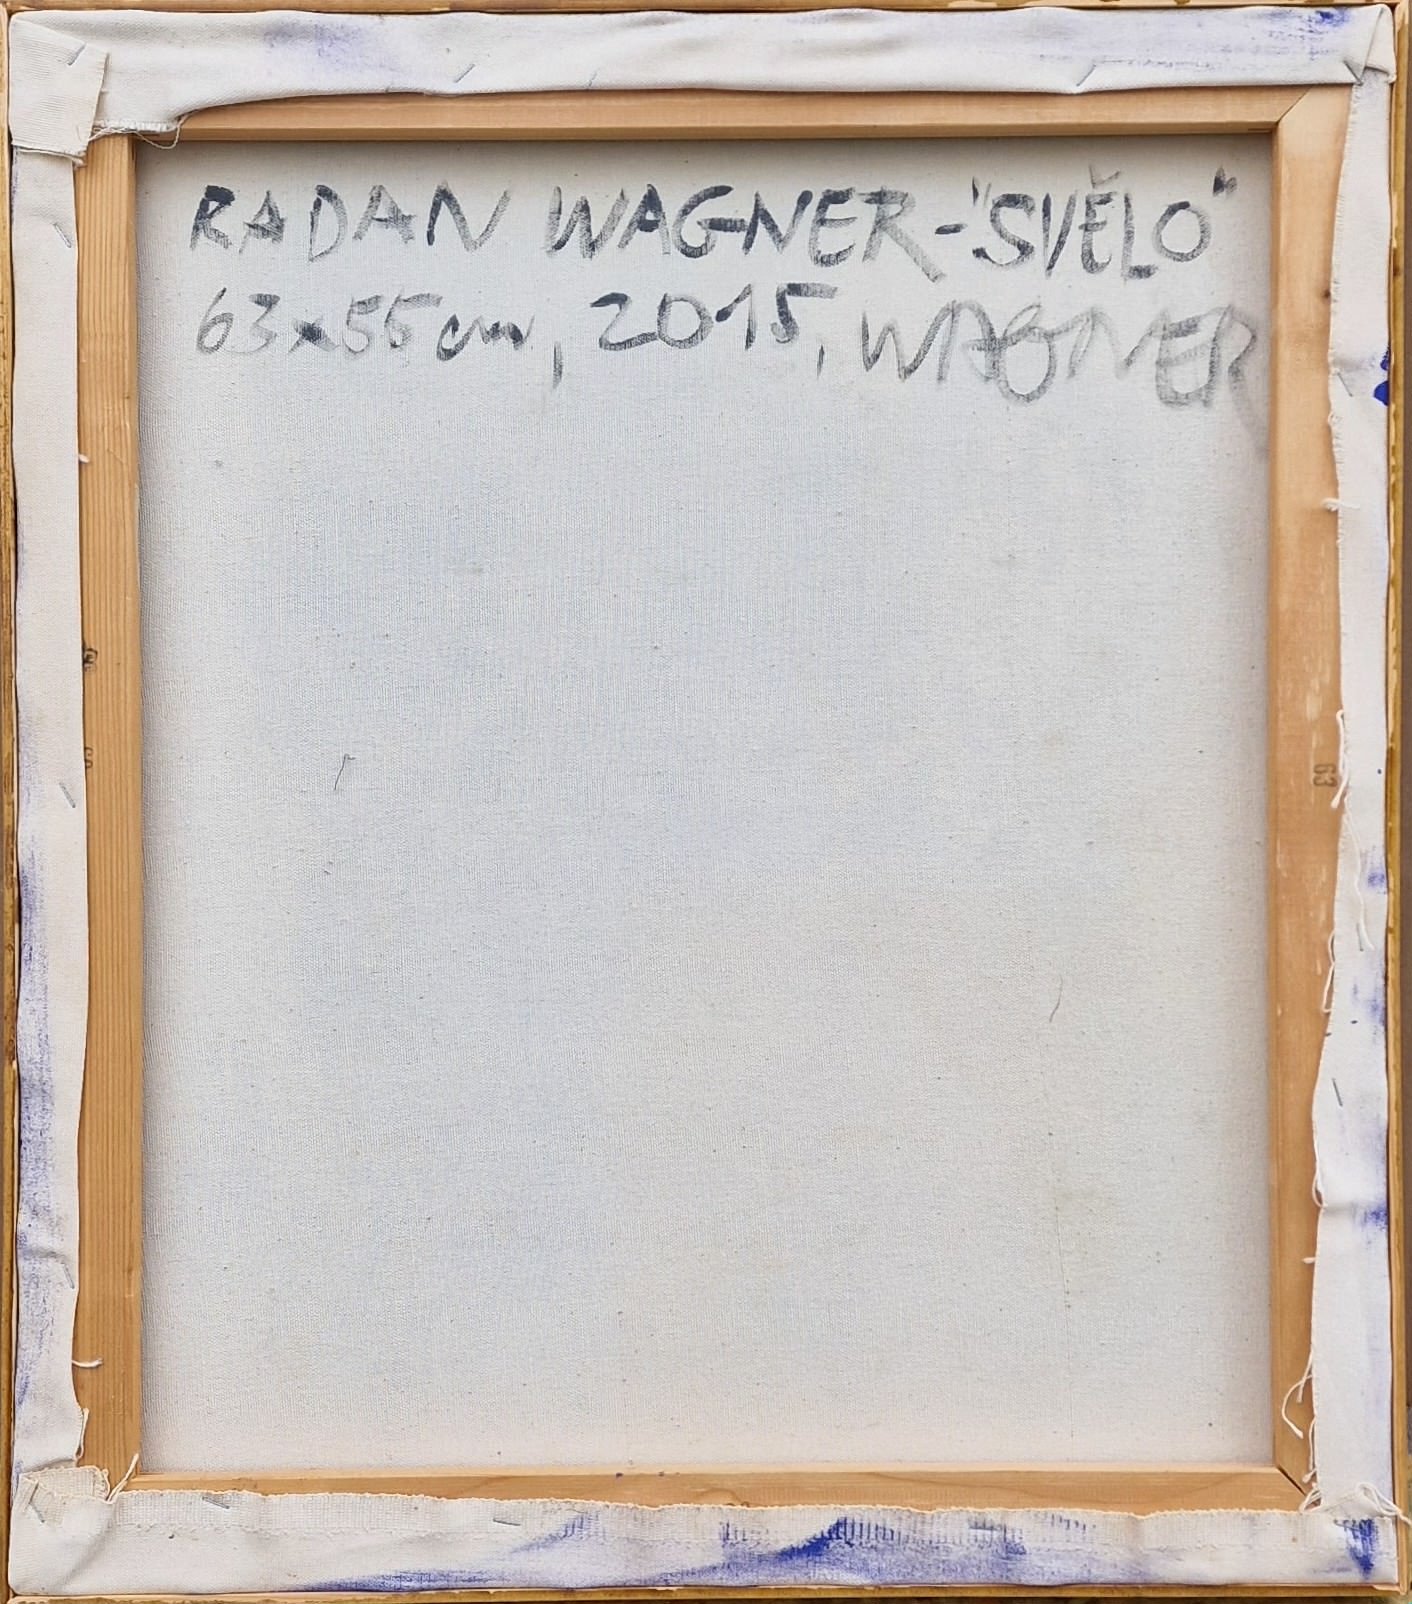 RADAN WAGNER - "SVĚLO"
63x55 cm, 2015, WAGNER
63